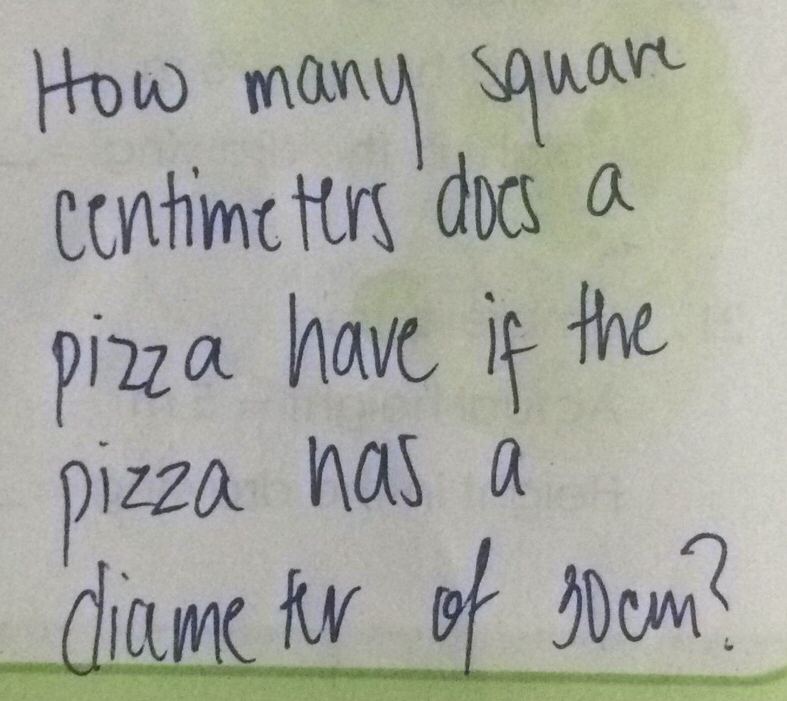 How many square
centimeters does a
pizza have if the
pizza has a
diameter of 30cm?